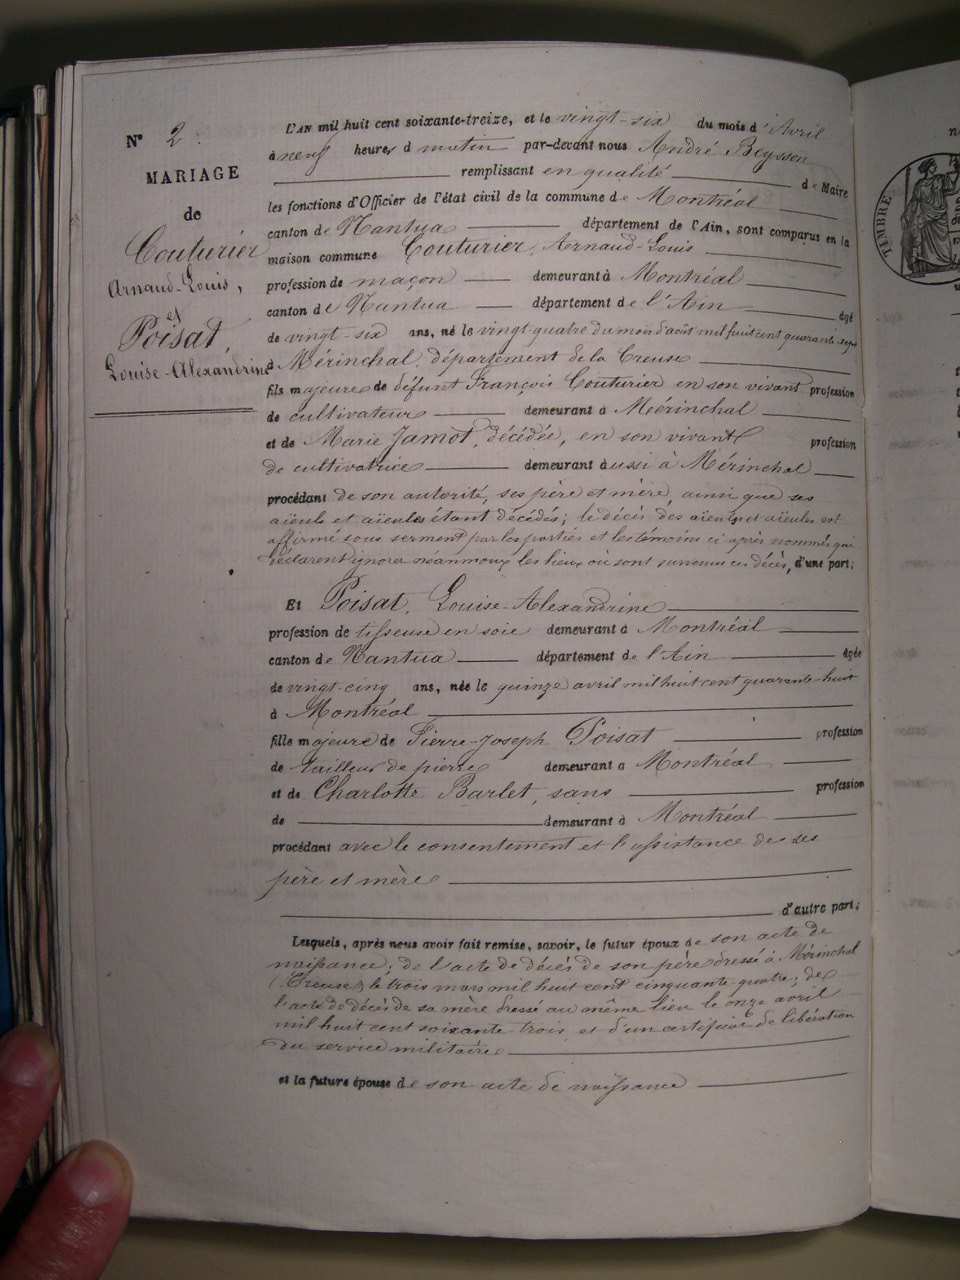 N° 2.
MARIAGE
de
Couturier
Arnaud-Louis,
et
Poisat,
Louise-Alexandrine
L'AN mil huit cent soixante-treize, et le vingt-six du mois d'Avril
à neuf heures d matin par-devant nous André Beysson
remplissant en qualité de Maire
les fonctions d'Officier de l'état civil de la commune de Montréal
canton de Nantua département de l'Ain, sont comparus en la
maison commune Couturier, Arnaud-Louis
profession de maçon demeurant à Montréal
canton de Nantua département de l'Ain âgé
de vingt-six ans, né le vingt quatre du mois d'août mil huit cent quarante-sept
à Mérinchal, département de la Creuse
fils majeur de défunt François Couturier en son vivant profession
de cultivateur demeurant à Méérinchal
et de Marie Jamot, décédée, en son vivant profession
de cultivatrice demeurant aussi à Mérinchal
procédant de son autorité, ses père et mère, ainsi que ses
aïeuls et aïeules étant décédés; le décès des aïeuls et aïeules est
affirmé sous serment par les parties et les témoins ci après nommés qui
déclarent ignorer néanmoins les lieux où sont survenus ces décès, d'une part;
Et Poisat, Louise-Alexandrine
profession de tisseuse en soie demeurant à Montréal
canton de Nantua département de l'Ain âgée
de vingt-cinq ans, née le quinze avril mil huit cent quarante-huit
à Montréal
fille majeure de Pierre-Joseph Poisat profession
de tailleur de pierre demeurant à Montréal
et de Charlotte Barlet, sans profession
de demeurant à Montréal
procédant avec le consentement et l'assistance de ses
père et mère
d'autre part;
Lesquels, après nous avoir fait remise, savoir, le futur époux de son acte de
naissance; de l'acte de décès de son père dressé à Mérinchal
(Creuse) le trois mars mil huit cent cinquante-quatre; de
l'acte de décès de sa mère dressé au même lieu le onze avril
mil huit cent soixante trois et d'un certificat de libération
du service militaire
et la future épouse de son acte de naissance
TIMBRE